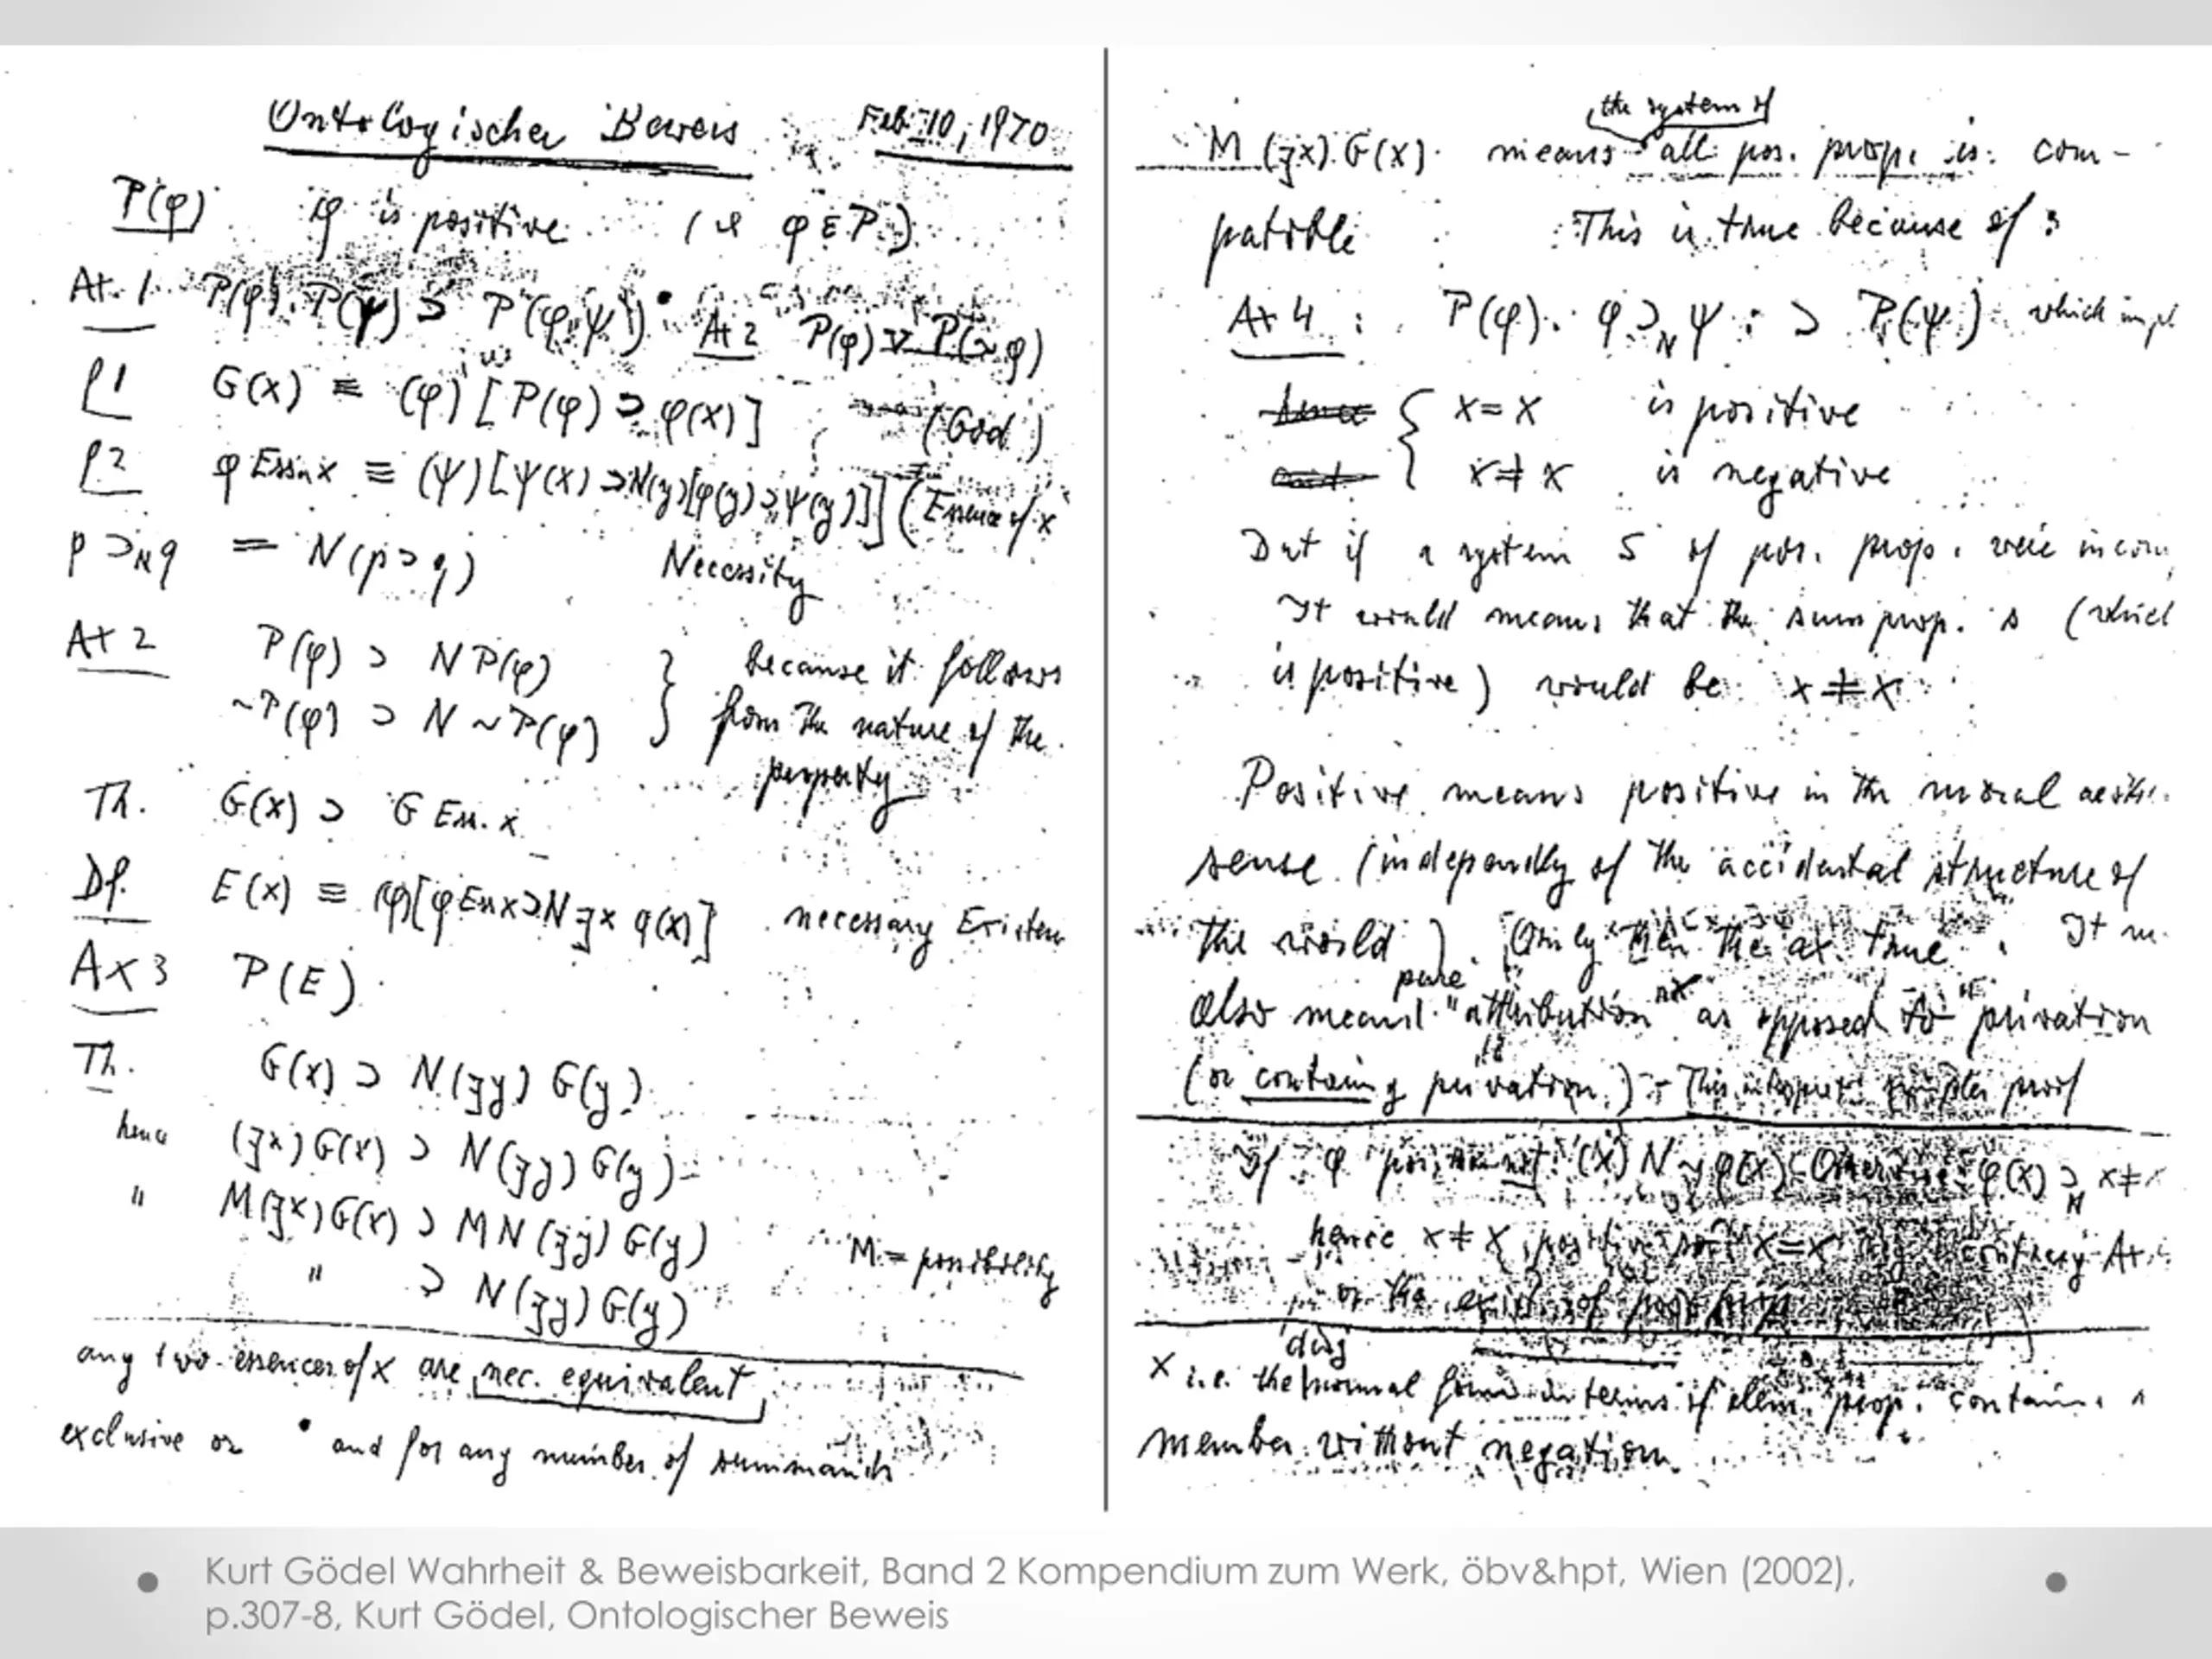 Ontologischer Beweis Feb. 10, 1970
P(φ) φ is positive (⊧ φ ∈ P.)
At. 1 P(φ). P(ψ) ⊃ P(φ.ψ)• At 2 P(φ) ∨ P(~φ)
P1 G(x) ≡ (φ)[P(φ) ⊃ φ(x)] (God)
P2 φ Ess. x ≡ (ψ)[ψ(x) ⊃ N(y)[φ(y) ⊃ ψ(y)]] (Essence of x
p ⊃N q = N(p ⊃ q) Necessity
At 2 P(φ) ⊃ N P(φ) } because it follows
~P(φ) ⊃ N ~P(φ) } from the nature of the
property
Th. G(x) ⊃ G Ess. x
Df. E(x) ≡ (φ)[φ Ess x ⊃ N ∃x φ(x)] necessary Existen
Ax 3 P(E)
Th. G(x) ⊃ N(∃y) G(y)
hence (∃x) G(x) ⊃ N(∃y) G(y)
" M(∃x) G(x) ⊃ M N (∃y) G(y) M = possibility
" ⊃ N(∃y) G(y)
any two essences of x are nec. equivalent
exclusive or • and for any number of summands
the system of
M (∃x) G(x) means all pos. prop. is com-
patible This is true because of :
Ax 4 : P(φ). φ ⊃N ψ : ⊃ P(ψ) which impl
{ x = x is positive
{ x ≠ x is negative
But if a system S of pos. prop. were incom
It would mean that the sum prop. s (which
is positive) would be x ≠ x
Positive means positive in the moral aesthe.
sense (independly of the accidental structure of
the world). Only then the ax. true. It m
pure
also means "attribution" as opposed to "privation
(or containing privation.) This interpret. simpler proof
If φ positive not: (x) N ~φ(x) Otherwise φ(x) ⊃N x ≠
hence x ≠ x positive x = x contrary At.
or the of
disj
x i.e. the normal form in terms of elem. prop. contains a
member without negation.
Kurt Gödel Wahrheit & Beweisbarkeit, Band 2 Kompendium zum Werk, öbv&hpt, Wien (2002),
p.307-8, Kurt Gödel, Ontologischer Beweis